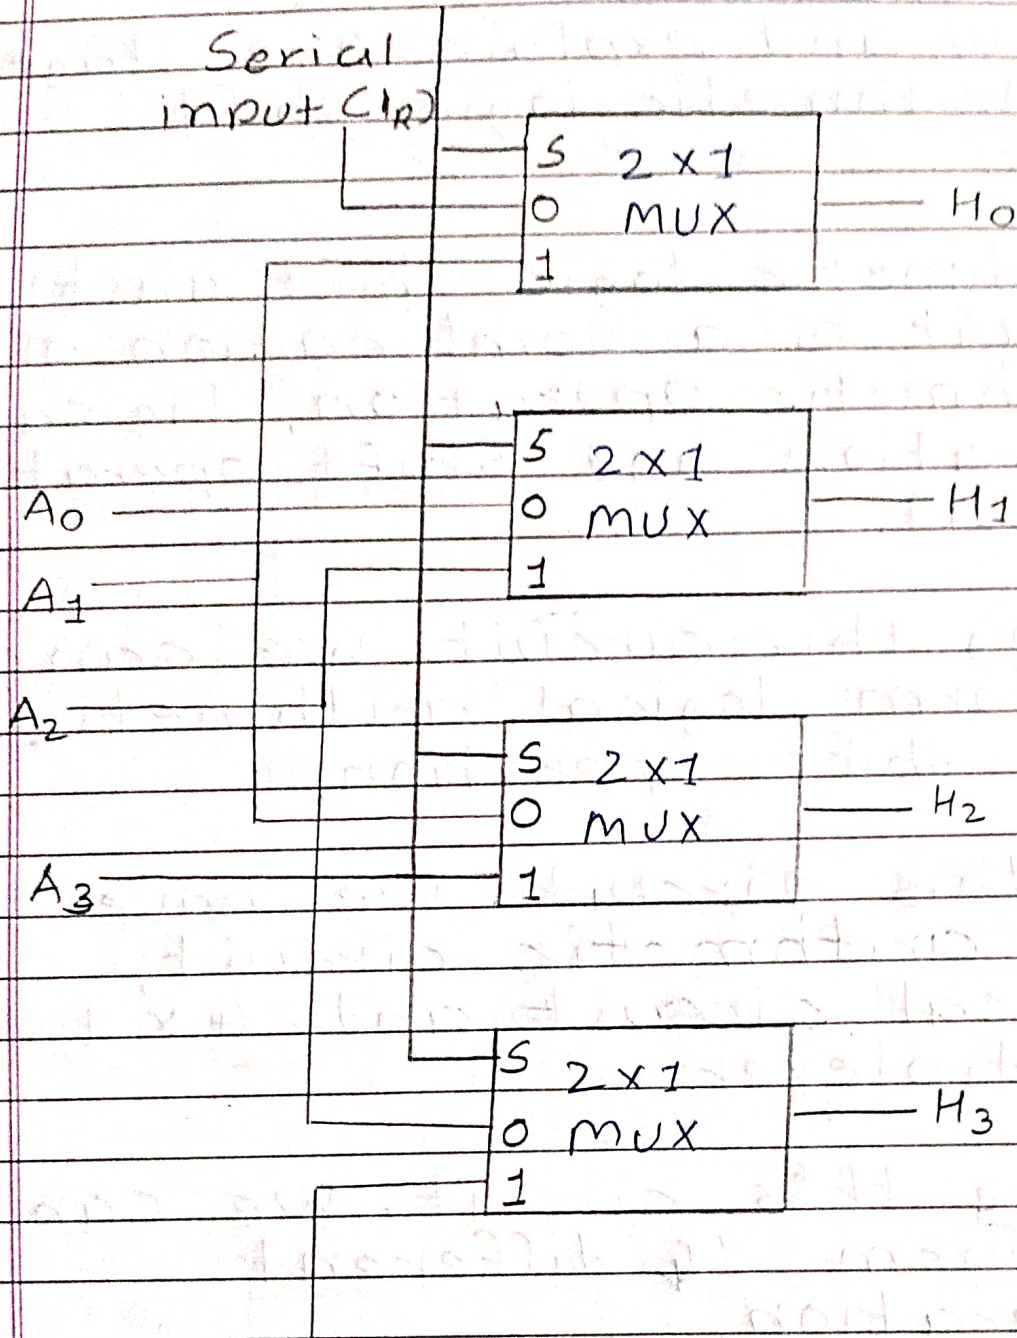 Serial
input (IR)
S 2x1
0 MUX
1
H0
S 2x1
0 MUX
1
H1
A0
A1
A2
S 2x1
0 MUX
1
H2
A3
S 2x1
0 MUX
1
H3